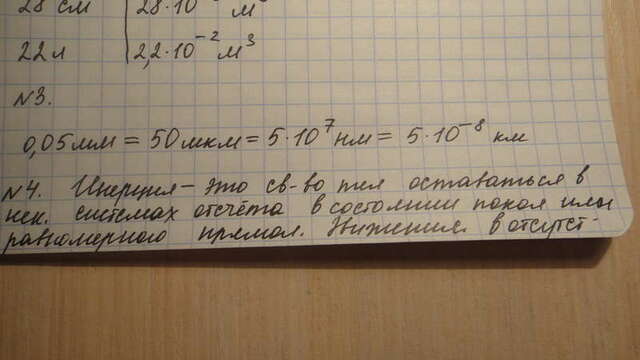 28 см | 28·10⁻ м
22 л | 2,2·10⁻² м³
№3.
0,05 мм = 50 мкм = 5·10⁷ нм = 5·10⁻⁸ км
№4. Инерция – это св-во тел оставаться в
нек. системах отсчёта в состоянии покоя или
равномерного прямол. движения в отсутст-